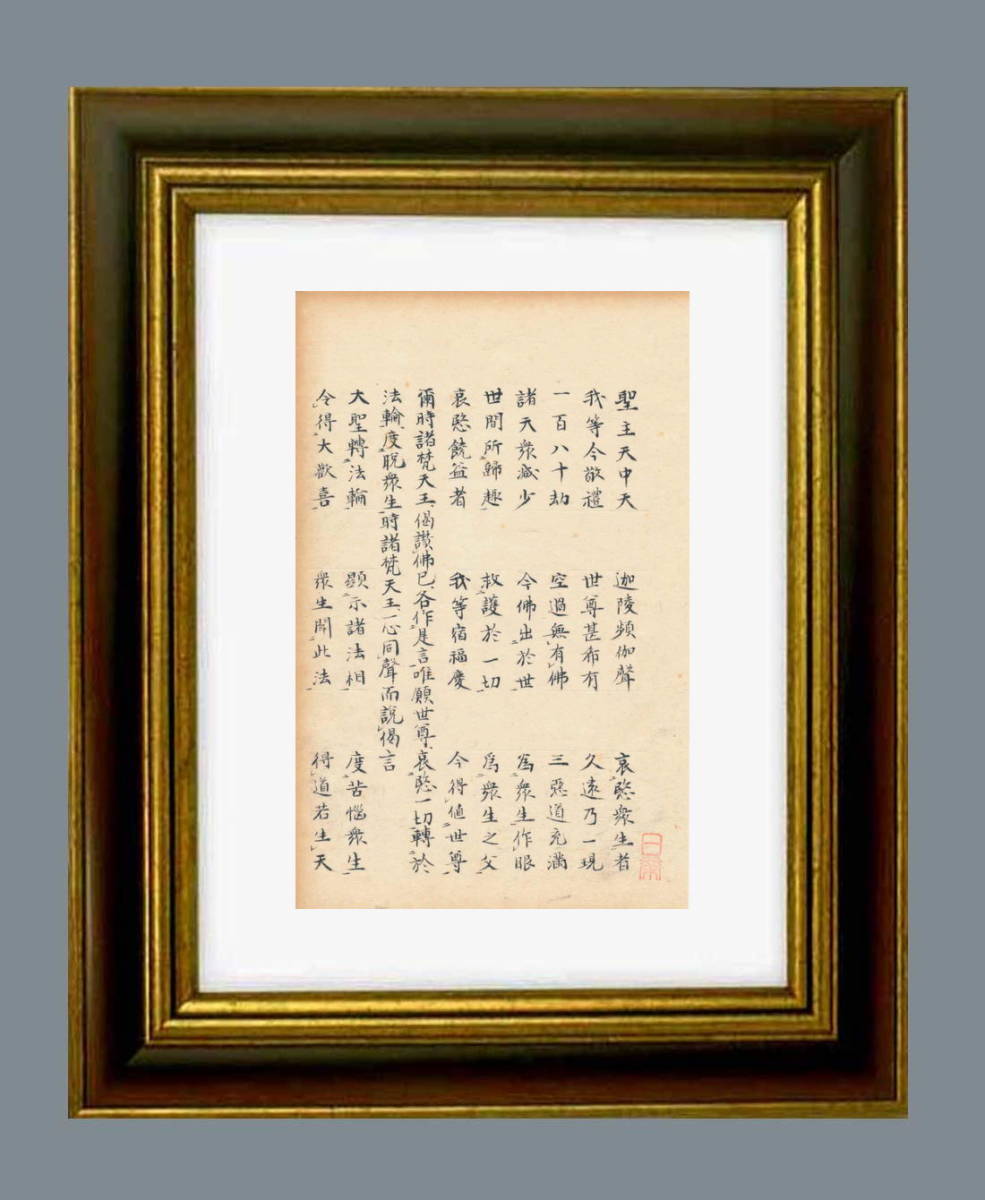 聖主天中天 迦陵頻伽聲 哀愍衆生者
我等今敬禮 世尊甚希有 久遠乃一現
一百八十劫 空過無有佛 三惡道充滿
諸天衆減少 今佛出於世 為衆生作眼
世間所歸趣 救護於一切 為衆生之父
哀愍饒益者 我等宿福慶 今得值世尊
爾時諸梵天王偈讚佛已各作是言唯願世尊哀愍一切轉於
法輪度脫衆生時諸梵天王一心同聲而說偈言
大聖轉法輪 顯示諸法相 度苦惱衆生
令得大歡喜 衆生聞此法 得道若生天